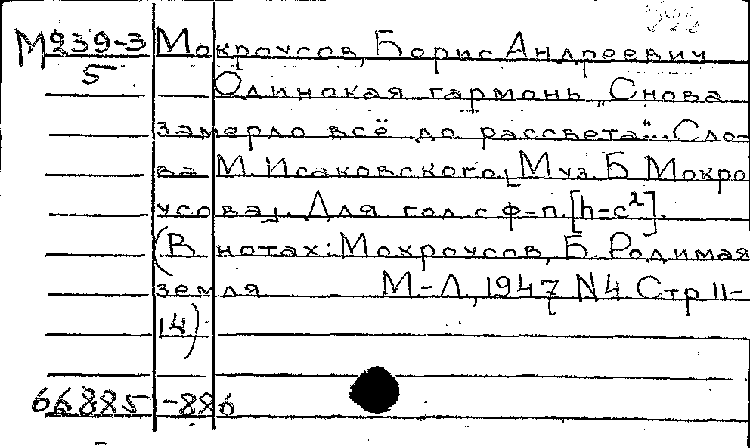 М239-3 Мокроусов, Борис Андреевич
5
Одинокая гармонь „Снова
замерло всё до рассвета"... Сло-
ва М. Исаковского, [Муз. Б Мокро
усова]. Для гол. с ф-п. [h-c²].
(В нотах: Мокроусов, Б. Родимая
земля М-Л, 1947 N4 Стр 11-
14)
66885 -886